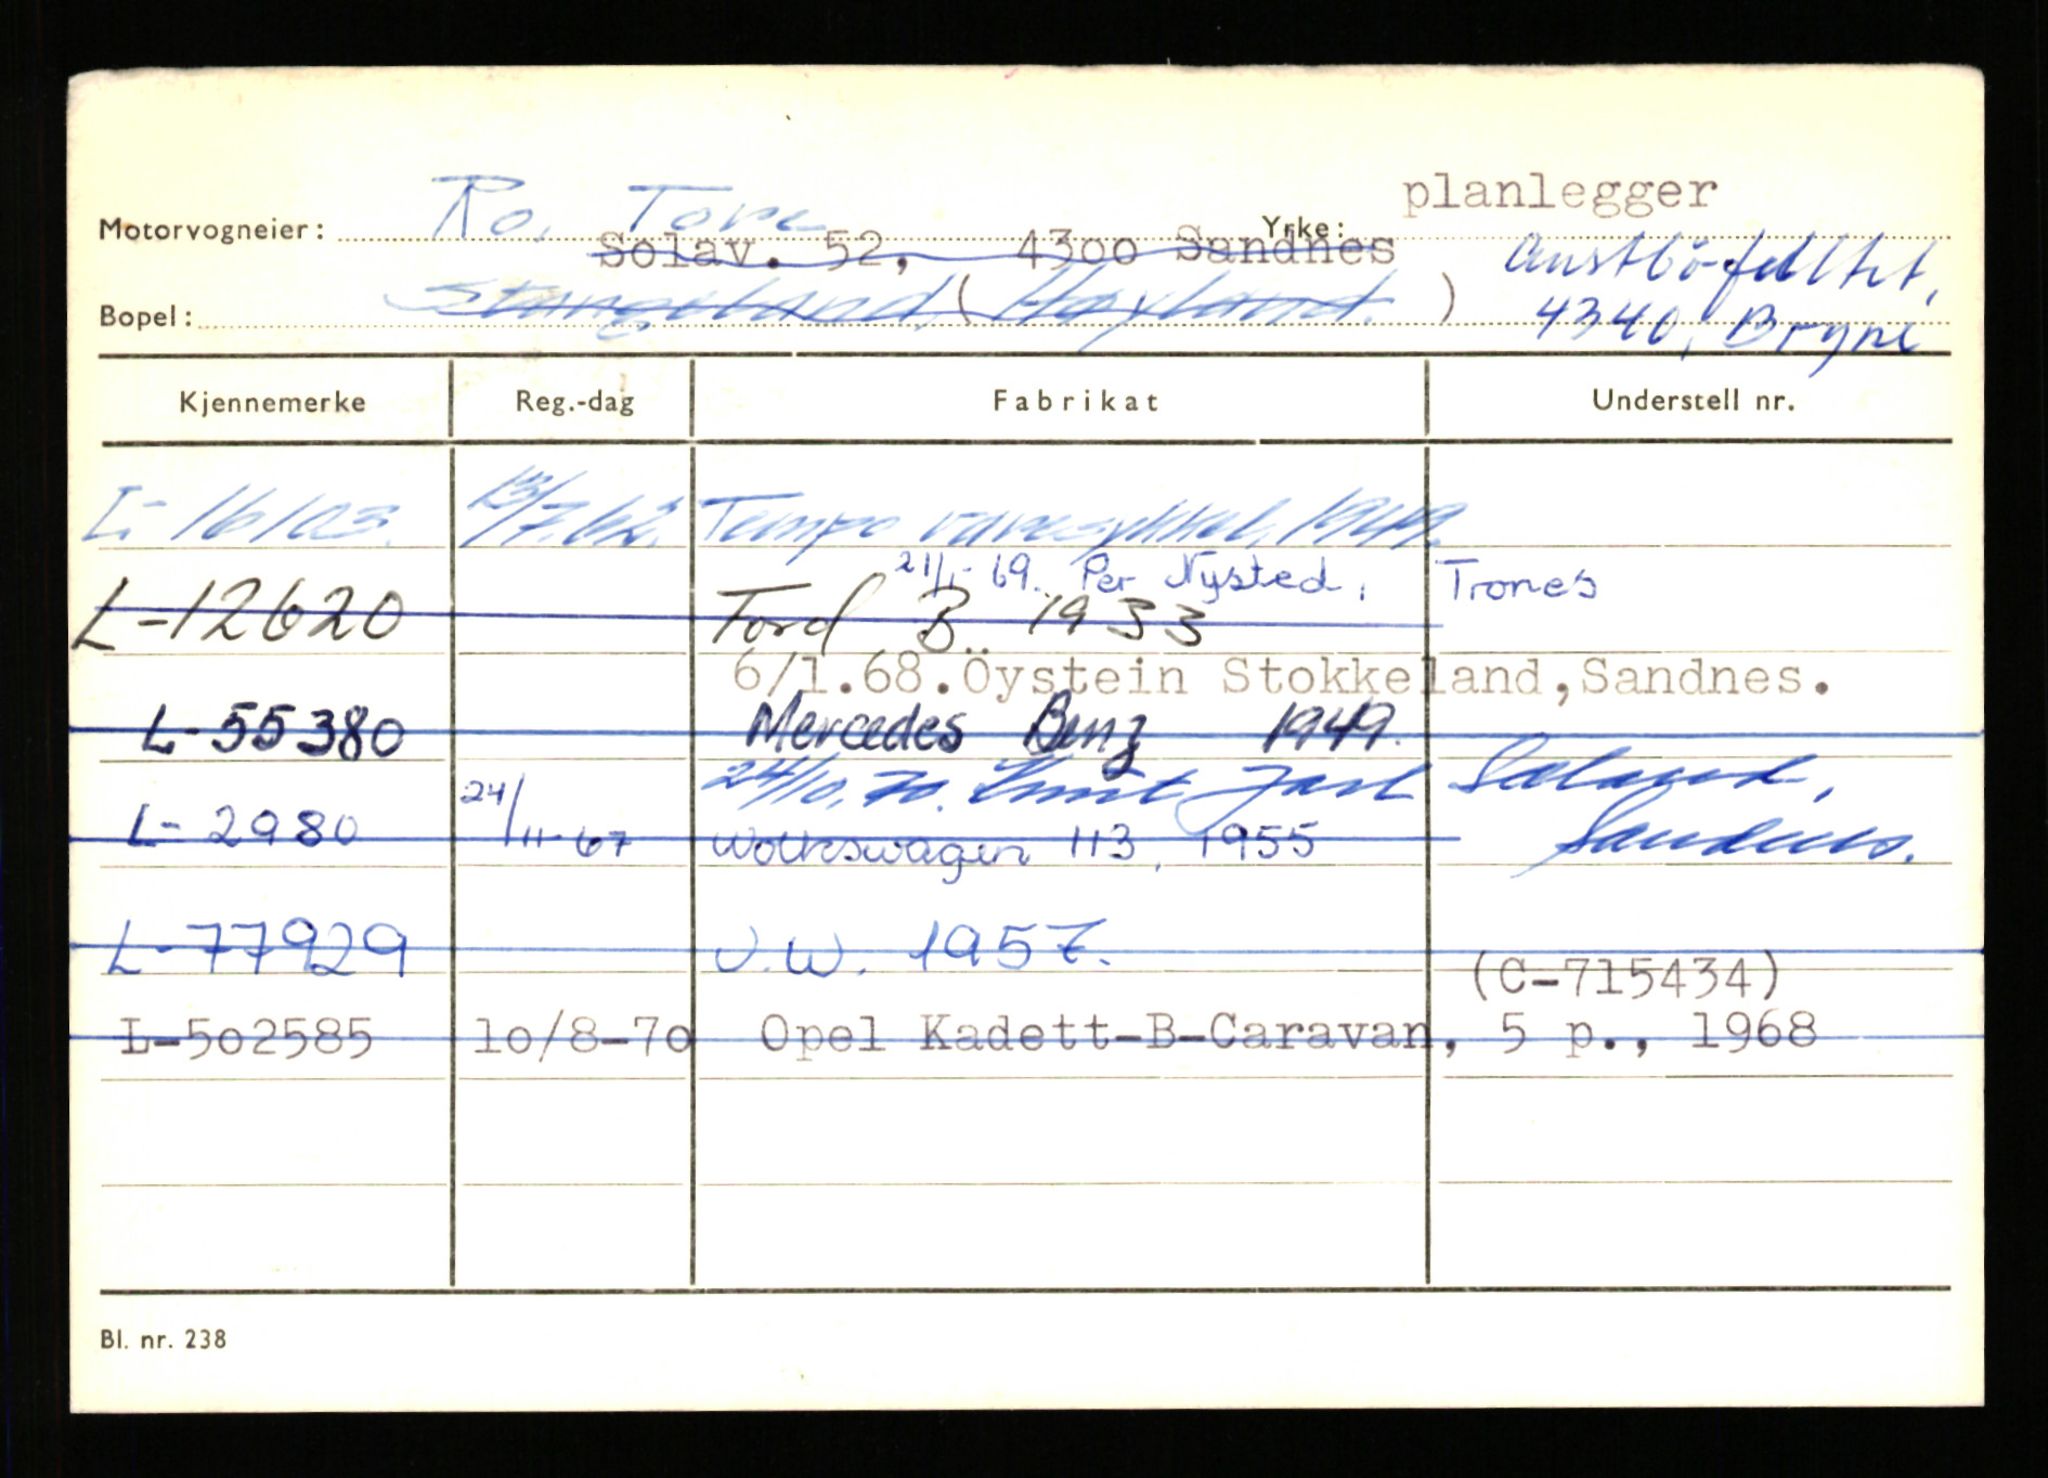 planlegger
Motorvogneier: Ro, Tore Yrke:
Solav. 52, 4300 Sandnes Austbö-feltet,
Bopel: Stangeland, (Høyland. ) 4340, Bryne
Kjennemerke Reg.-dag Fabrikat Understell nr.
L-16103. 13/7.62. Tempo varesykkel, 1949.
21/1-69. Per Nysted, Trones
L-12620 Ford B. 1933
6/1.68.Öystein Stokkeland,Sandnes.
L-55380 Mercedes Benz 1949.
24/10.70. Jarl Sæland,
L-2980 24/11-67 Wolkswagen 113, 1955 Sandnes.
L-77929 V.W. 1957.
(C-715434)
L-502585 10/8-70 Opel Kadett-B-Caravan, 5 p., 1968
Bl. nr. 238